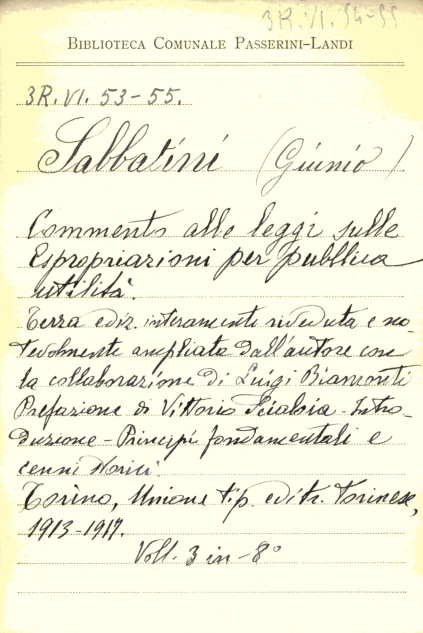 3R.VI. 54-55
BIBLIOTECA COMUNALE PASSERINI-LANDI
3R.VI. 53-55.
Sabbatini (Giunio)
Commento alle leggi sulle
Espropriazioni per pubblica
utilità.
Terza ediz. interamente riveduta e no-
tevolmente ampliata dall'autore con
la collaborazione di Luigi Biamonti
Prefazione di Vittorio Scialoia - Intro-
duzione - Principi fondamentali e
cenni storici.
Torino, Unione tip. editr. Torinese,
1913-1917.
Voll. 3 in-8°